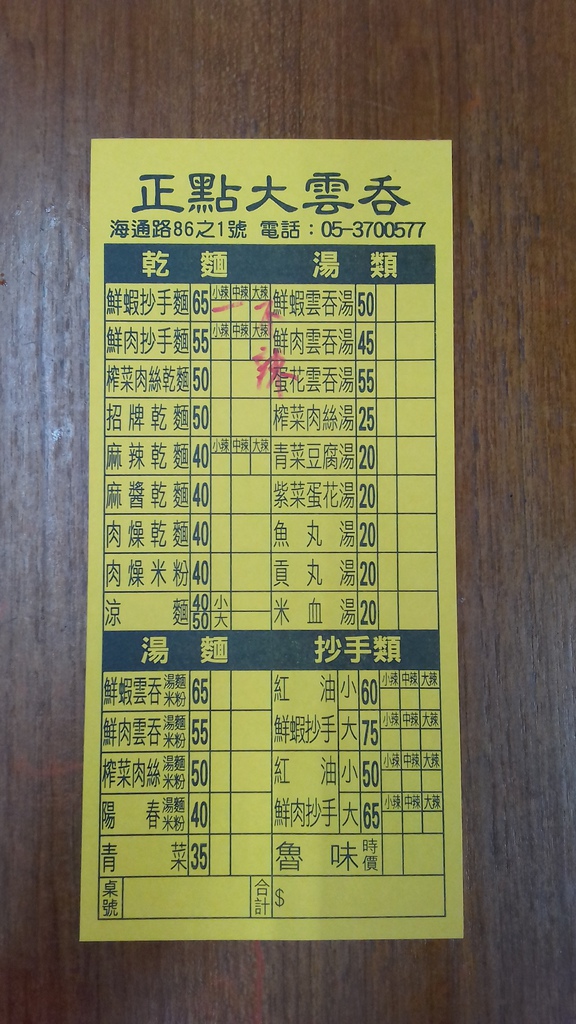 正點大雲吞
海通路86之1號 電話：05-3700577
乾麵 湯類
鮮蝦抄手麵 65 小辣 中辣 大辣 鮮蝦雲吞湯 50
一 不辣
鮮肉抄手麵 55 小辣 中辣 大辣 鮮肉雲吞湯 45
榨菜肉絲乾麵 50 蛋花雲吞湯 55
招牌乾麵 50 榨菜肉絲湯 25
麻辣乾麵 40 小辣 中辣 大辣 青菜豆腐湯 20
麻醬乾麵 40 紫菜蛋花湯 20
肉燥乾麵 40 魚丸湯 20
肉燥米粉 40 貢丸湯 20
涼麵 40 小 50 大 米血湯 20
湯麵 抄手類
鮮蝦雲吞 湯麵 米粉 65 紅油 小 60 小辣 中辣 大辣
鮮肉雲吞 湯麵 米粉 55 鮮蝦抄手 大 75 小辣 中辣 大辣
榨菜肉絲 湯麵 米粉 50 紅油 小 50 小辣 中辣 大辣
陽春 湯麵 米粉 40 鮮肉抄手 大 65 小辣 中辣 大辣
青菜 35 魯味 時價
桌號 合計 $